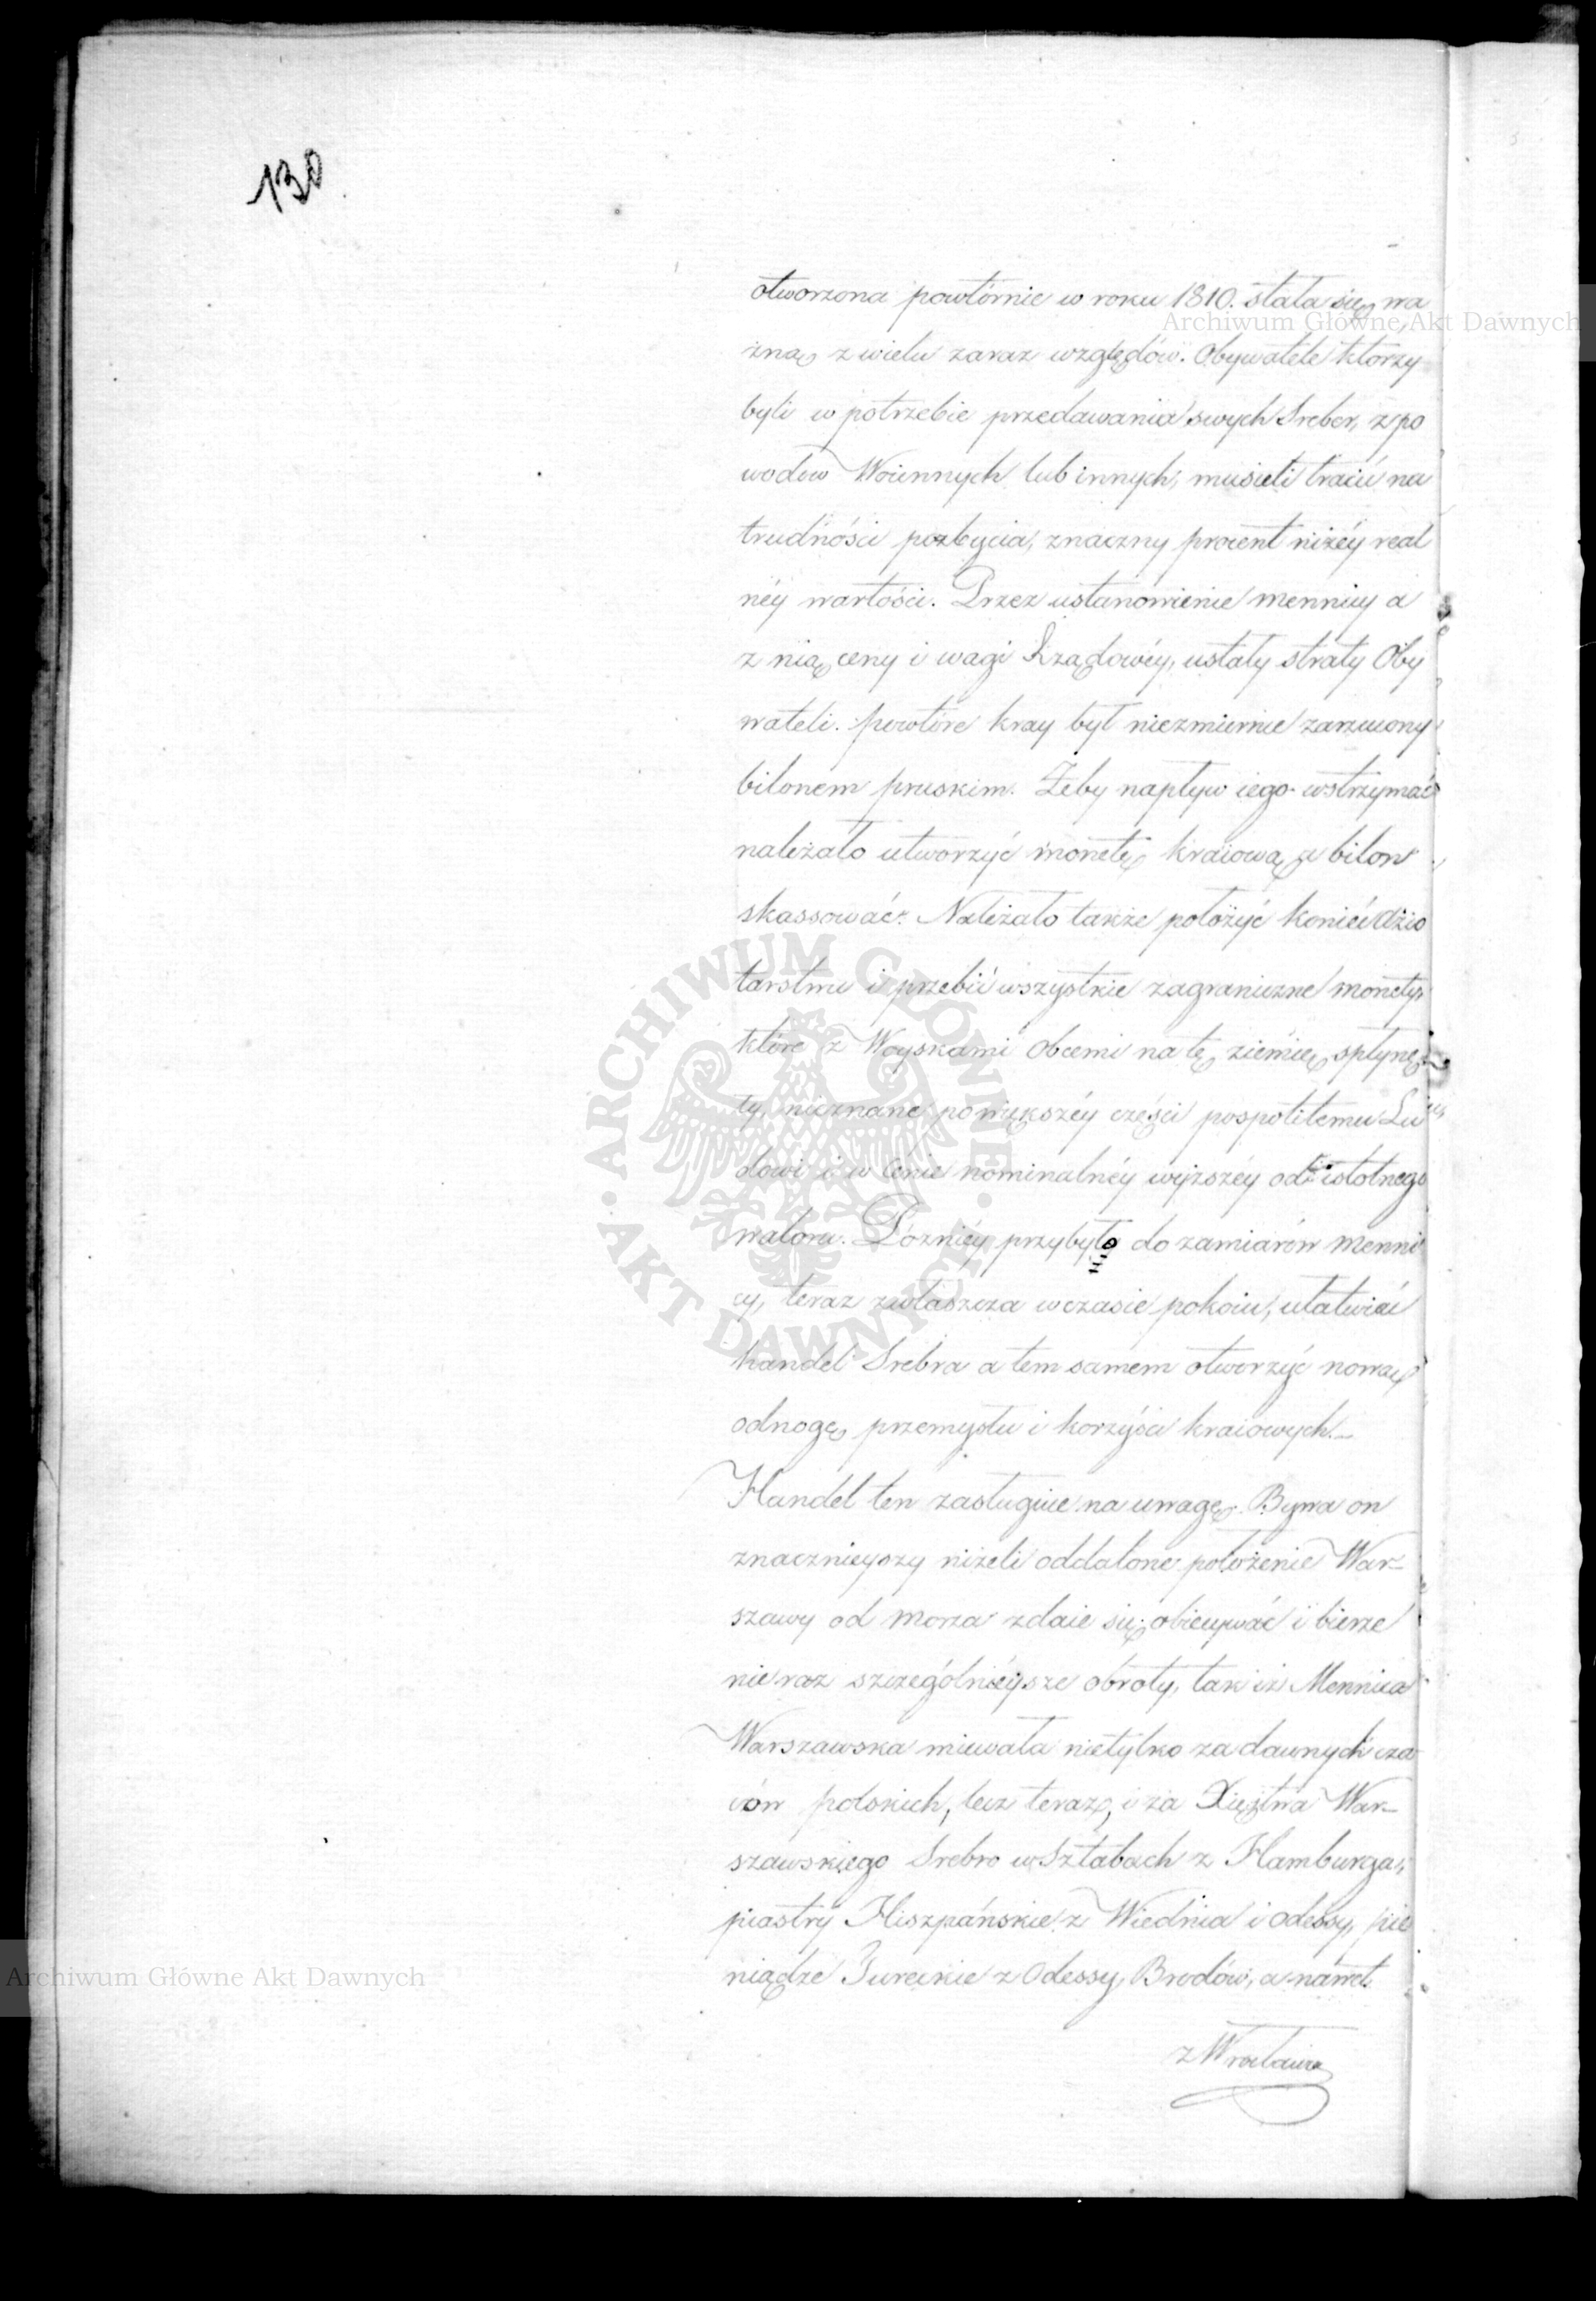 130
otworzona powtórnie w roku 1810. stała się wa
żną z wielu zaraz względów. Obywatele którzy
byli w potrzebie przedawania swych Sreber, z po
wodów Woiennych lub innych, musieli tracić na
trudności pozbycia, znaczny procent niżéy real
néy wartości. Przez ustanowienie mennicy a
z nią ceny i wagi Rządowéy, ustały straty Oby
wateli. powtóre kray był niezmiernie zarzucony
bilonem pruskim. Żeby napływ iego wstrzymać
należało utworzyć monetę kraiową a bilon
skassować. Należało także położyć koniec ażio
tarstwu i przebić wszystkie zagraniczne monety,
które z Woyskami Obcemi na tę ziemię spłynę
ły, nieznane po większéy części pospolitemu Lu
dowi i w cenie nominalnéy wyższéy od istotnego
waloru. Pózniéy przybyło do zamiarów menni
cy, teraz zwłaszcza w czasie pokoiu, ułatwiać
handel Srebra a tem samem otworzyć nową
odnogę przemysłu i korzyści kraiowych.
Handel ten zasługuie na uwagę. Bywa on
znacznieyszy niżeli oddalone położenie War-
szawy od morza zdaie się obiecywać i bierze
nie raz szczególniéysze obroty, tak iż Mennica
Warszawska miewała nietylko za dawnych cza
sów polskich, lecz teraz, i za Xięstwa War-
szawskiego Srebro w Sztabach z Hamburga,
piastry Hiszpańskie z Wiednia i Odessy, pie
niądze Tureckie z Odessy, Brodów, a nawet
z Wrocławia
Archiwum Główne Akt Dawnych
ARCHIWUM GŁÓWNE AKT DAWNYCH
Archiwum Główne Akt Dawnych